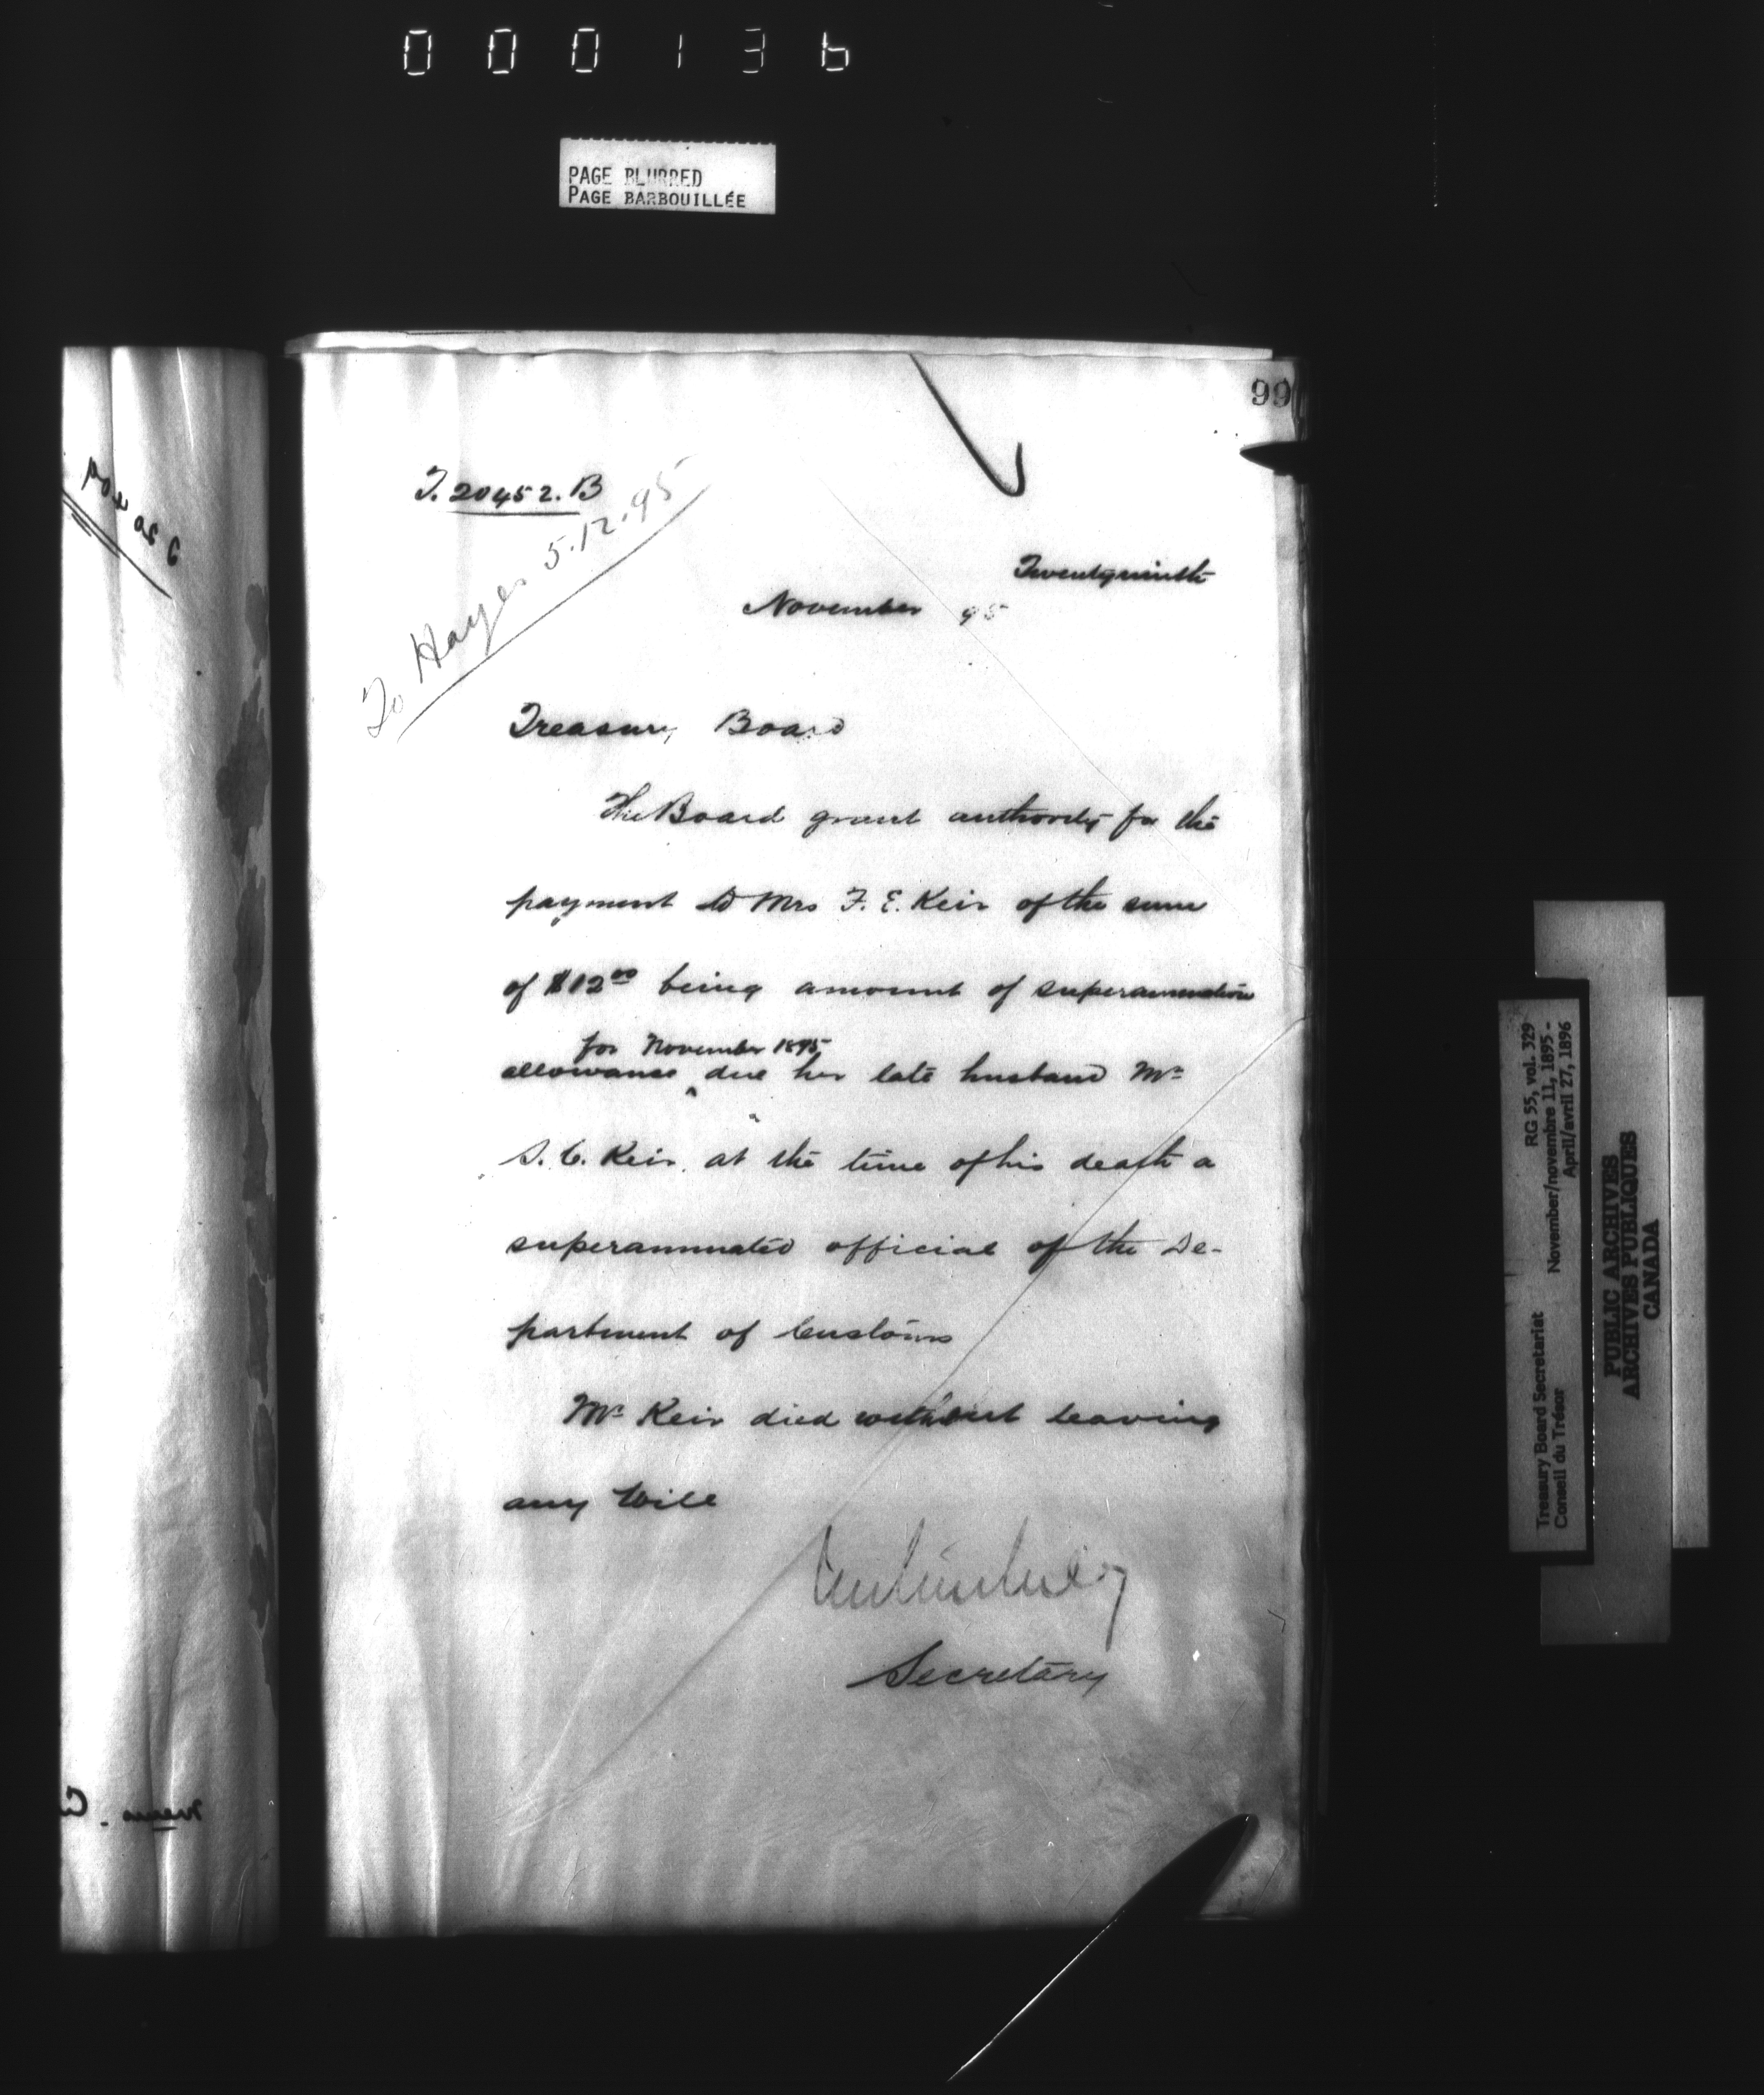 000136
PAGE BLURRED
PAGE BARBOUILLÉE
99
T. 20452. B
To Hayes 5.12.95
Twentyninth
November 95
Treasury Board
The Board grant authority for the
payment to Mrs F. E. Keir of the sum
of $12⁰⁰ being amount of superannuation
for November 1895
allowance ^ due her late husband Mr
S. C. Keir, at the time of his death a
superannuated official of the De-
partment of Customs
Mr Keir died without leaving
any Will
Secretary
Treasury Board Secretariat RG 55, vol. 329
Conseil du Trésor November/novembre 11, 1895 -
April/avril 27, 1896
PUBLIC ARCHIVES
ARCHIVES PUBLIQUES
CANADA